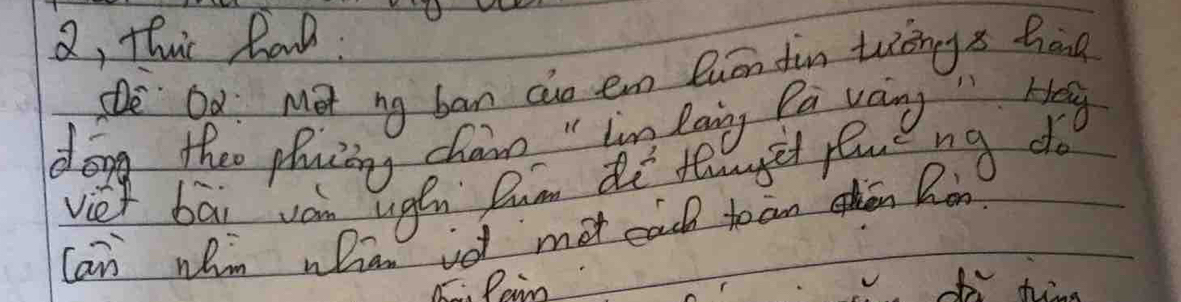 2, Thực hành:
Đề 02: Một ng bạn của em luôn tin tưởng & hành
động theo phương châm "im lặng là vàng". Hãy
viết bài văn nghị luận để thuyết phục ng đó
cần nhìn nhận vđ một cách toàn diện hơn.